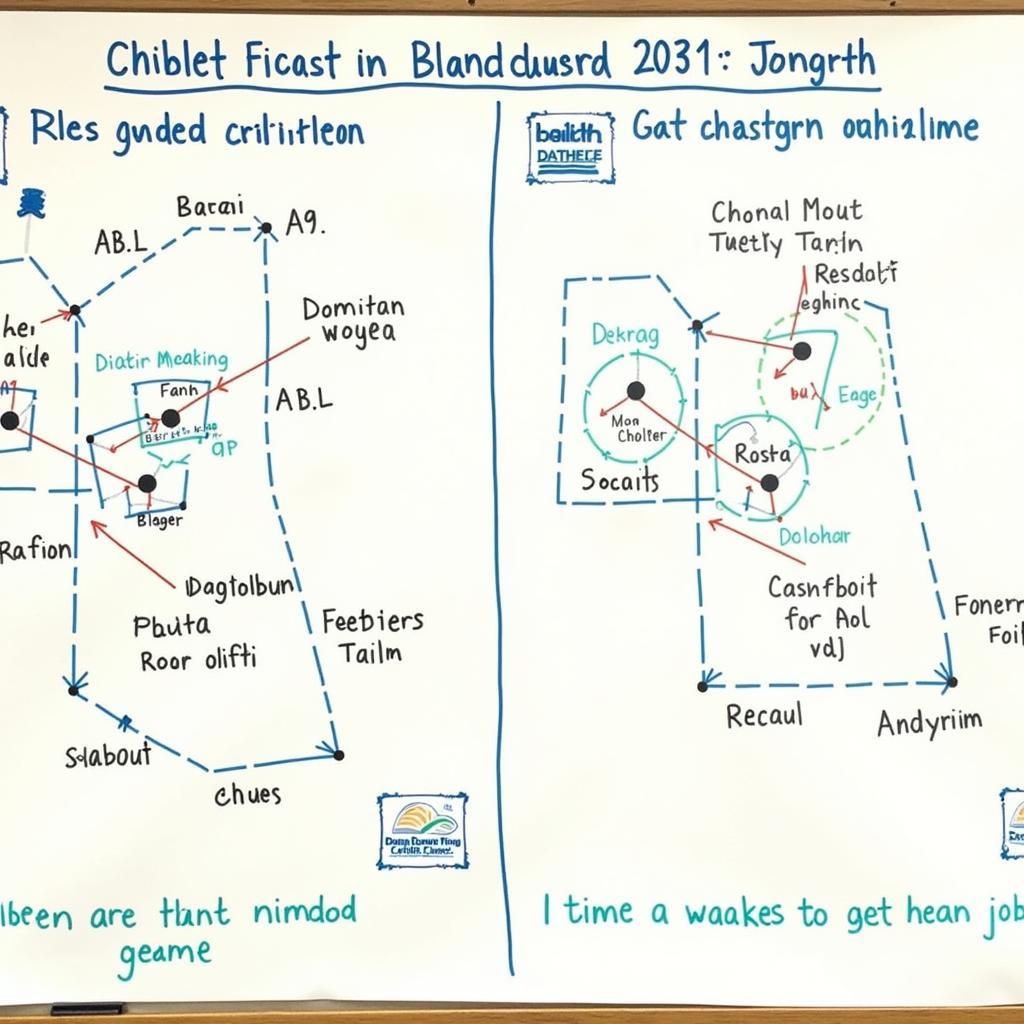 Chiblet Ficast in Blandduusrd 2031: Jongrth
Rles gnded
Baraii
A9.
AB.L
her
alde
Domitan
woyea
Diatir Meaking
Fanh
AB.L
qp
Blager
Rafion
Dagtolbun
Pbuta
Roor olifti
Feebiers
Tailm
Sdabout
chues
lbeen are thant nimdod
geame
bailith
DATHECE
Gat chastgrn oahizlime
Chonal Mout
Tuetly Tarin
Resdati
eghinc
Dekrag
Mon
Cholter
Socaits
Eage
Rosta
Dolohar
Casnfboit
for Aol
vdj
Fonerr
Foil
Recaul
Andyriim
I time a waakes to get hean job